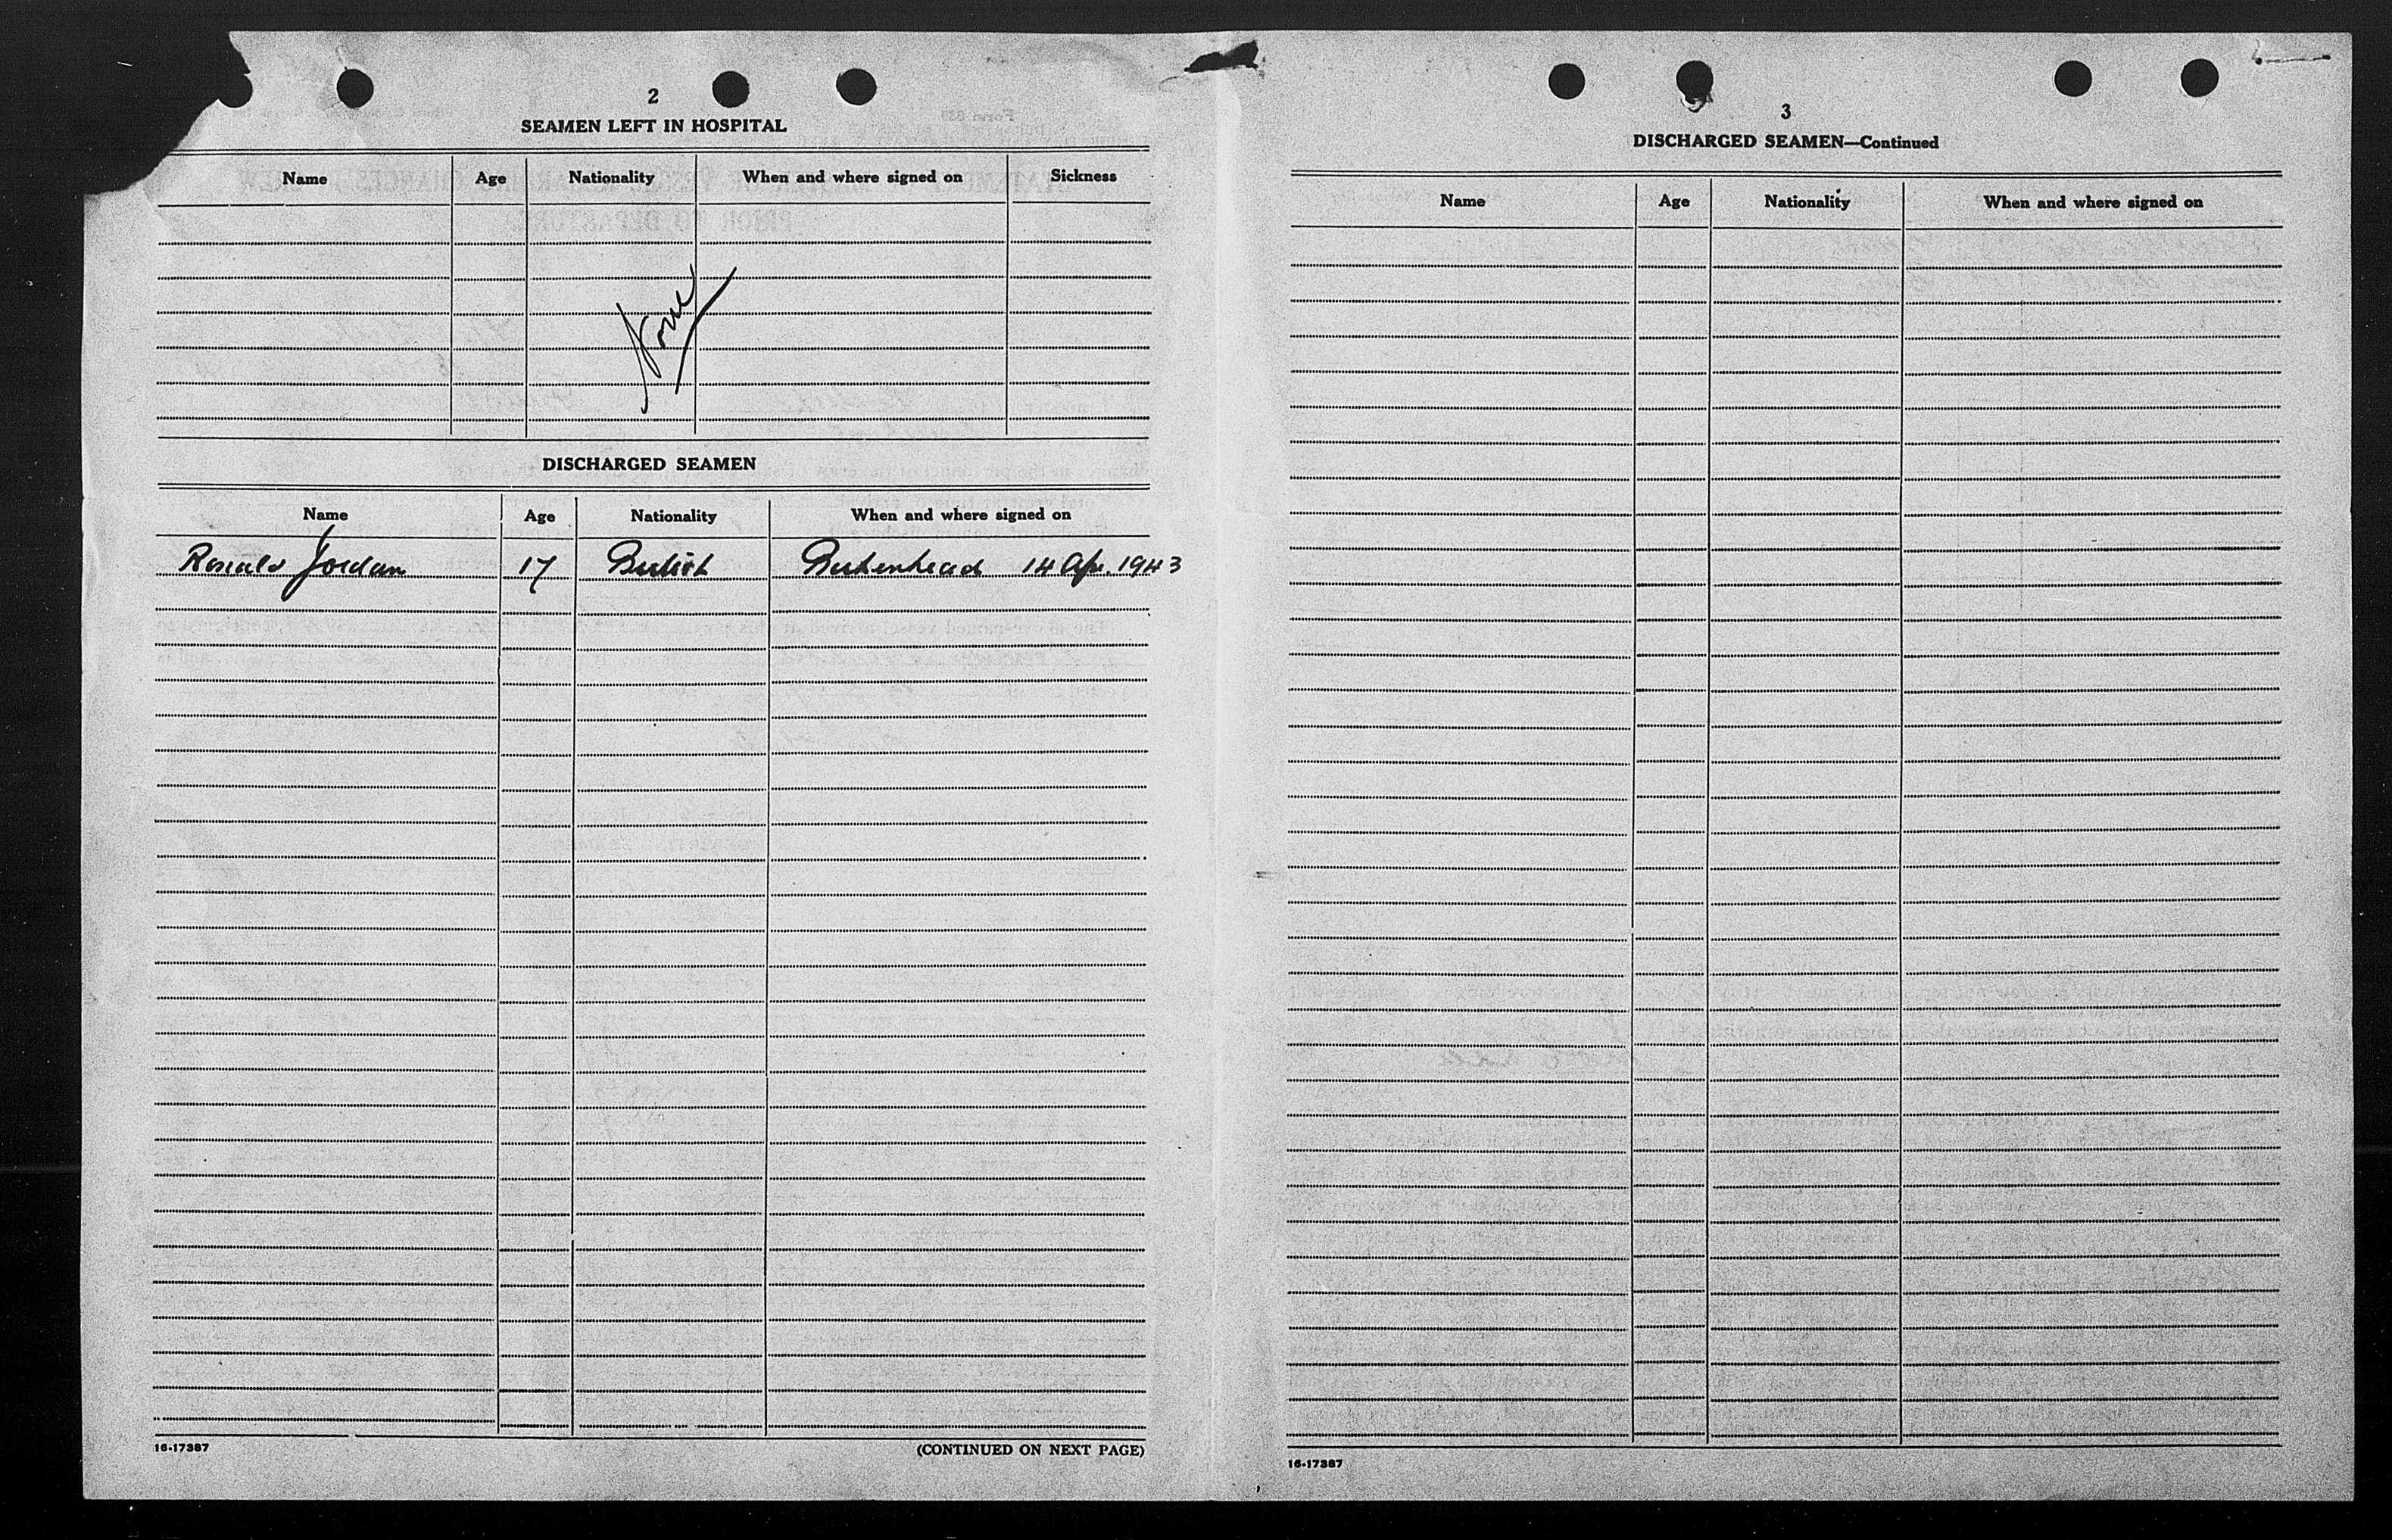 2
SEAMEN LEFT IN HOSPITAL
Name Age Nationality When and where signed on Sickness
None
DISCHARGED SEAMEN
Name Age Nationality When and where signed on
Ronald Jordan 17 British Birkenhead 14 Apr. 1943
16-17387 (CONTINUED ON NEXT PAGE)
3
DISCHARGED SEAMEN—Continued
Name Age Nationality When and where signed on
16-17387